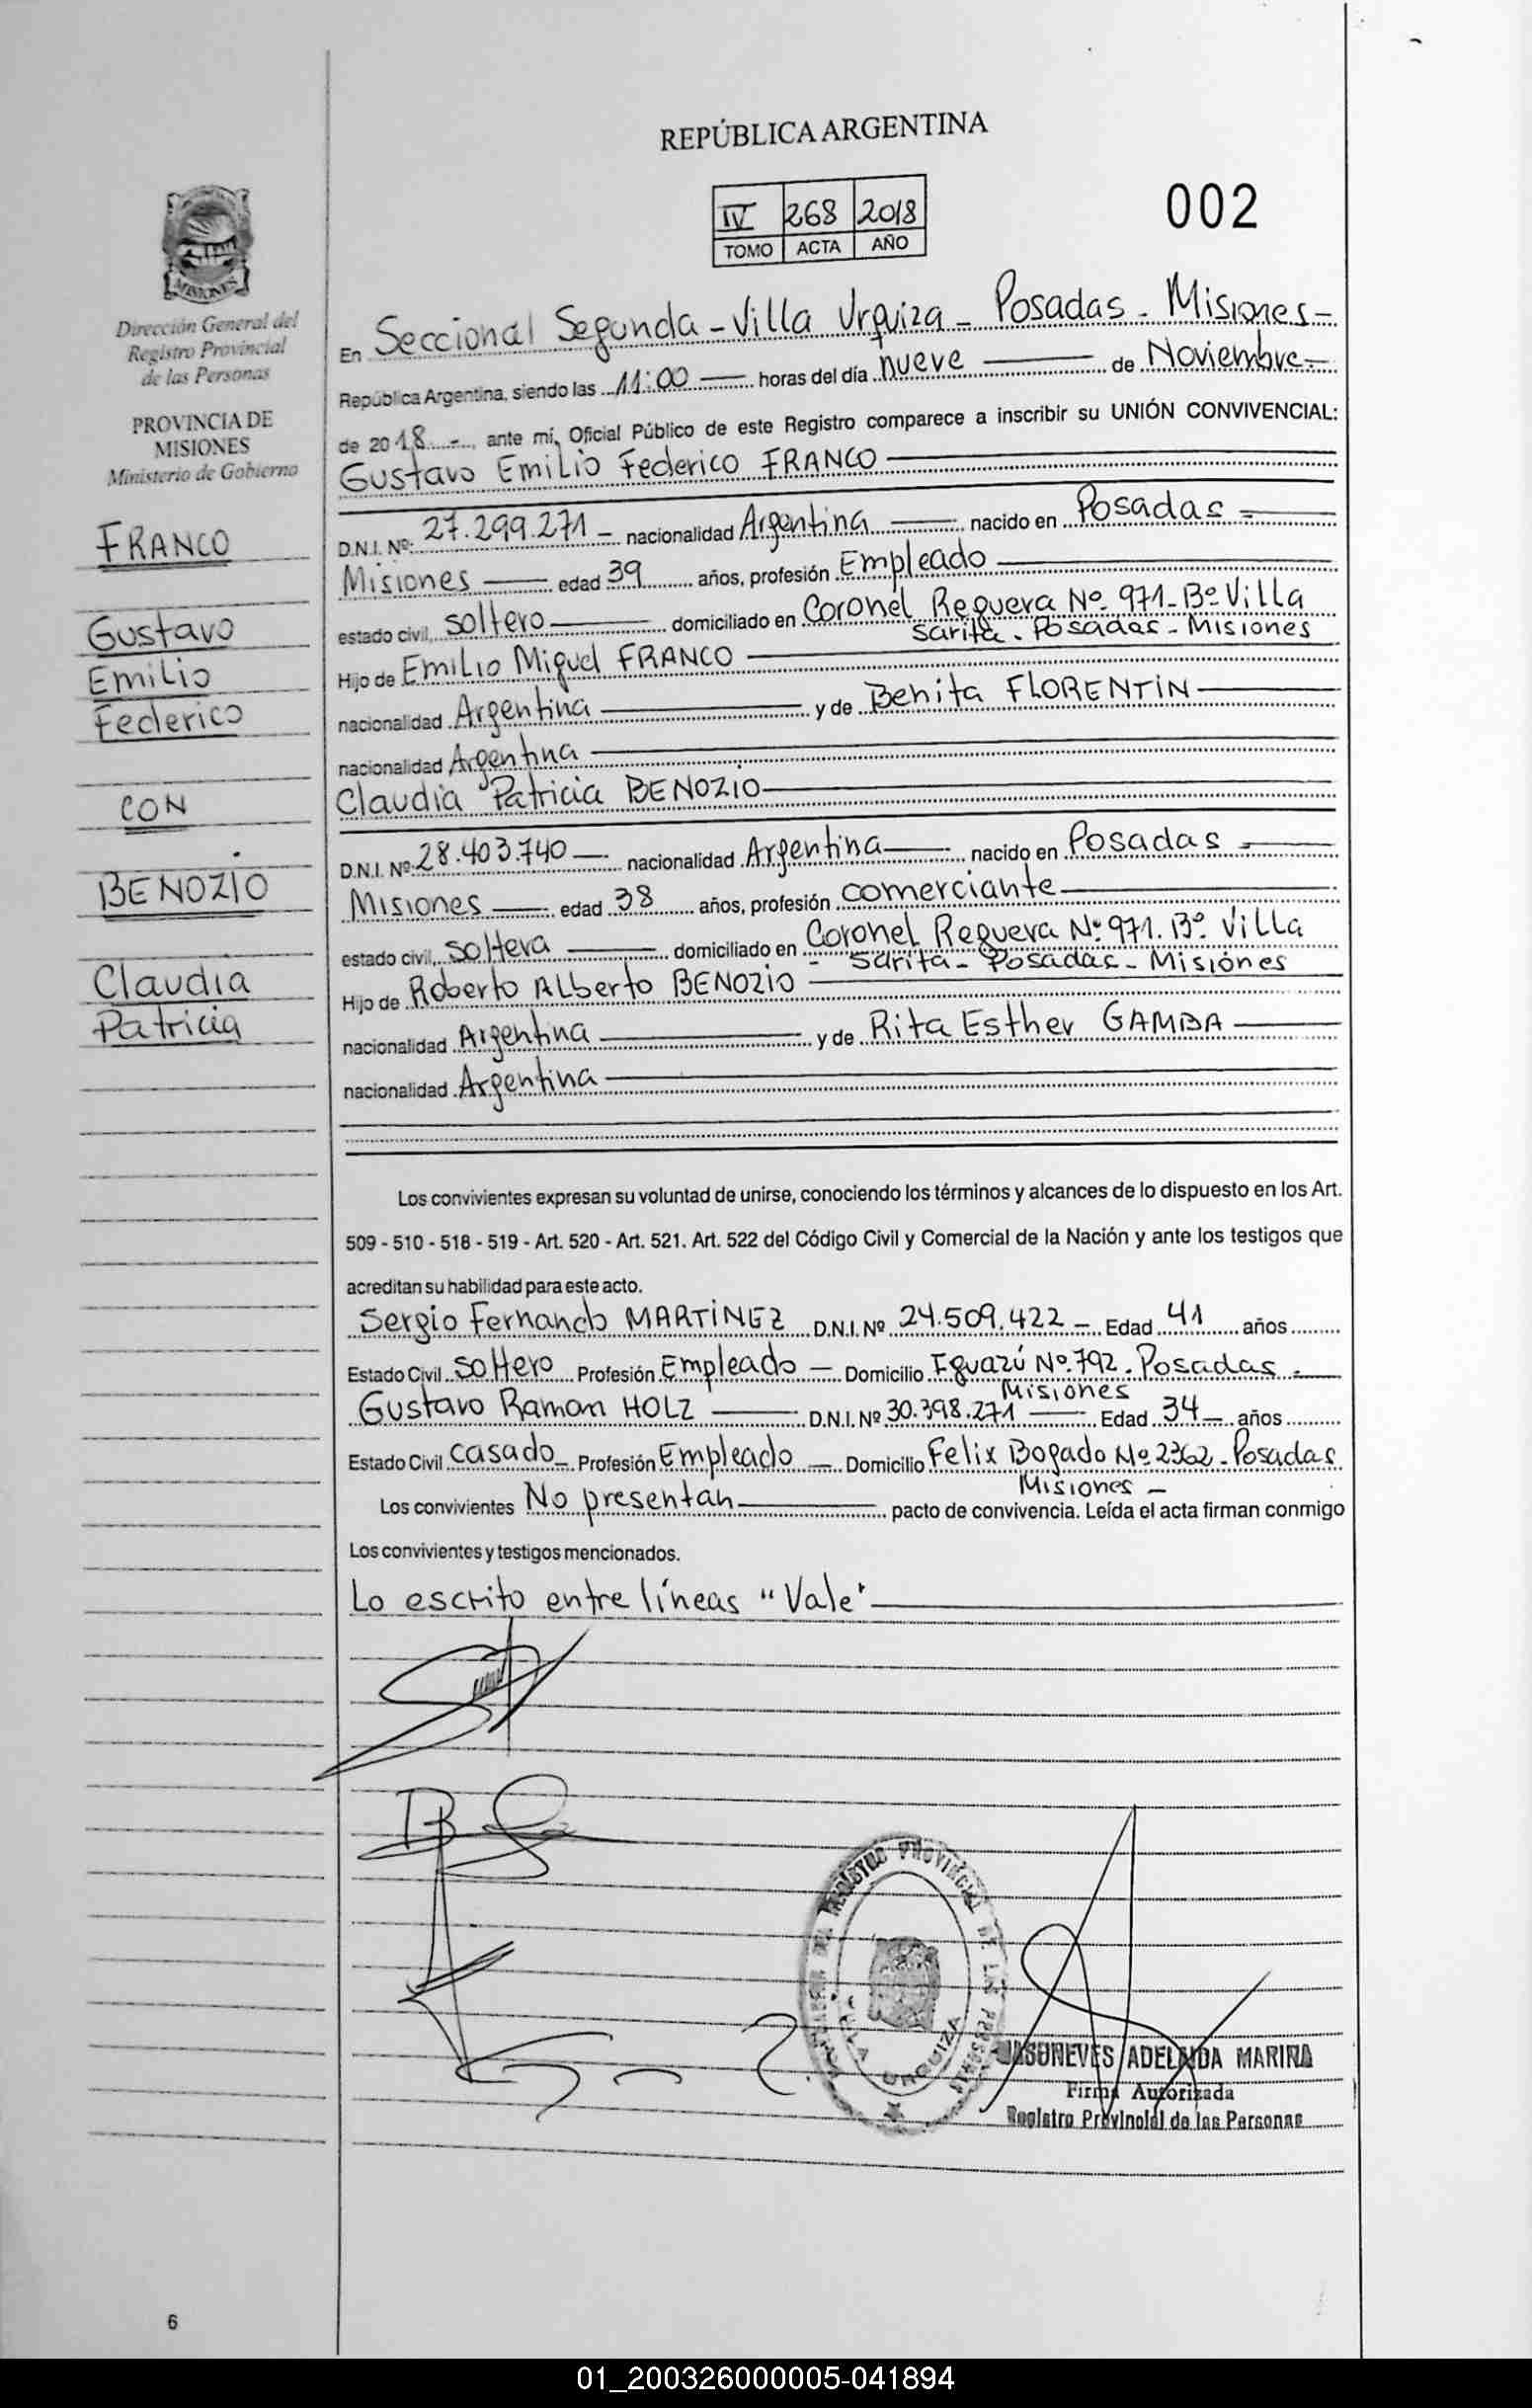 REPÚBLICA ARGENTINA
IV 268 2018
TOMO ACTA AÑO
002
MISIONES
Dirección General del
Registro Provincial
de las Personas
PROVINCIA DE
MISIONES
Ministerio de Gobierno
FRANCO
Gustavo
Emilio
Federico
CON
BENOZIO
Claudia
Patricia
En Seccional Segunda - Villa Urquiza - Posadas - Misiones -
República Argentina, siendo las 11:00 horas del día nueve de Noviembre -
de 2018 -, ante mí, Oficial Público de este Registro comparece a inscribir su UNIÓN CONVIVENCIAL:
Gustavo Emilio Federico FRANCO
D.N.I. Nº: 27.299.271 - nacionalidad Argentina nacido en Posadas -
Misiones edad 39 años, profesión Empleado
estado civil, soltero domiciliado en Coronel Reguera Nº 971 - Bº Villa
Sarita - Posadas - Misiones
Hijo de Emilio Miguel FRANCO
nacionalidad Argentina y de Benita FLORENTIN
nacionalidad Argentina
Claudia Patricia BENOZIO
D.N.I. Nº: 28.403.740 nacionalidad Argentina nacido en Posadas -
Misiones edad 38 años, profesión comerciante
estado civil, soltera domiciliado en Coronel Reguera Nº 971. Bº Villa
- Sarita - Posadas - Misiones
Hijo de Roberto Alberto BENOZIO
nacionalidad Argentina y de Rita Esther GAMBA
nacionalidad Argentina
Los convivientes expresan su voluntad de unirse, conociendo los términos y alcances de lo dispuesto en los Art.
509 - 510 - 518 - 519 - Art. 520 - Art. 521. Art. 522 del Código Civil y Comercial de la Nación y ante los testigos que
acreditan su habilidad para este acto.
Sergio Fernando MARTINEZ D.N.I. Nº 24.509.422 - Edad 41 años
Estado Civil soltero Profesión Empleado - Domicilio Iguazú Nº 792 - Posadas -
Misiones
Gustavo Ramon HOLZ D.N.I. Nº 30.398.271 Edad 34 - años
Estado Civil casado - Profesión Empleado - Domicilio Felix Bogado Nº 2362 - Posadas
Misiones -
Los convivientes No presentan pacto de convivencia. Leída el acta firman conmigo
Los convivientes y testigos mencionados.
Lo escrito entre líneas "Vale"
REGISTRO PROVINCIAL DE LAS PERSONAS
VILLA URQUIZA
ADELAIDA MARINA
Firma Autorizada
Registro Provincial de las Personas
6
01_200326000005-041894